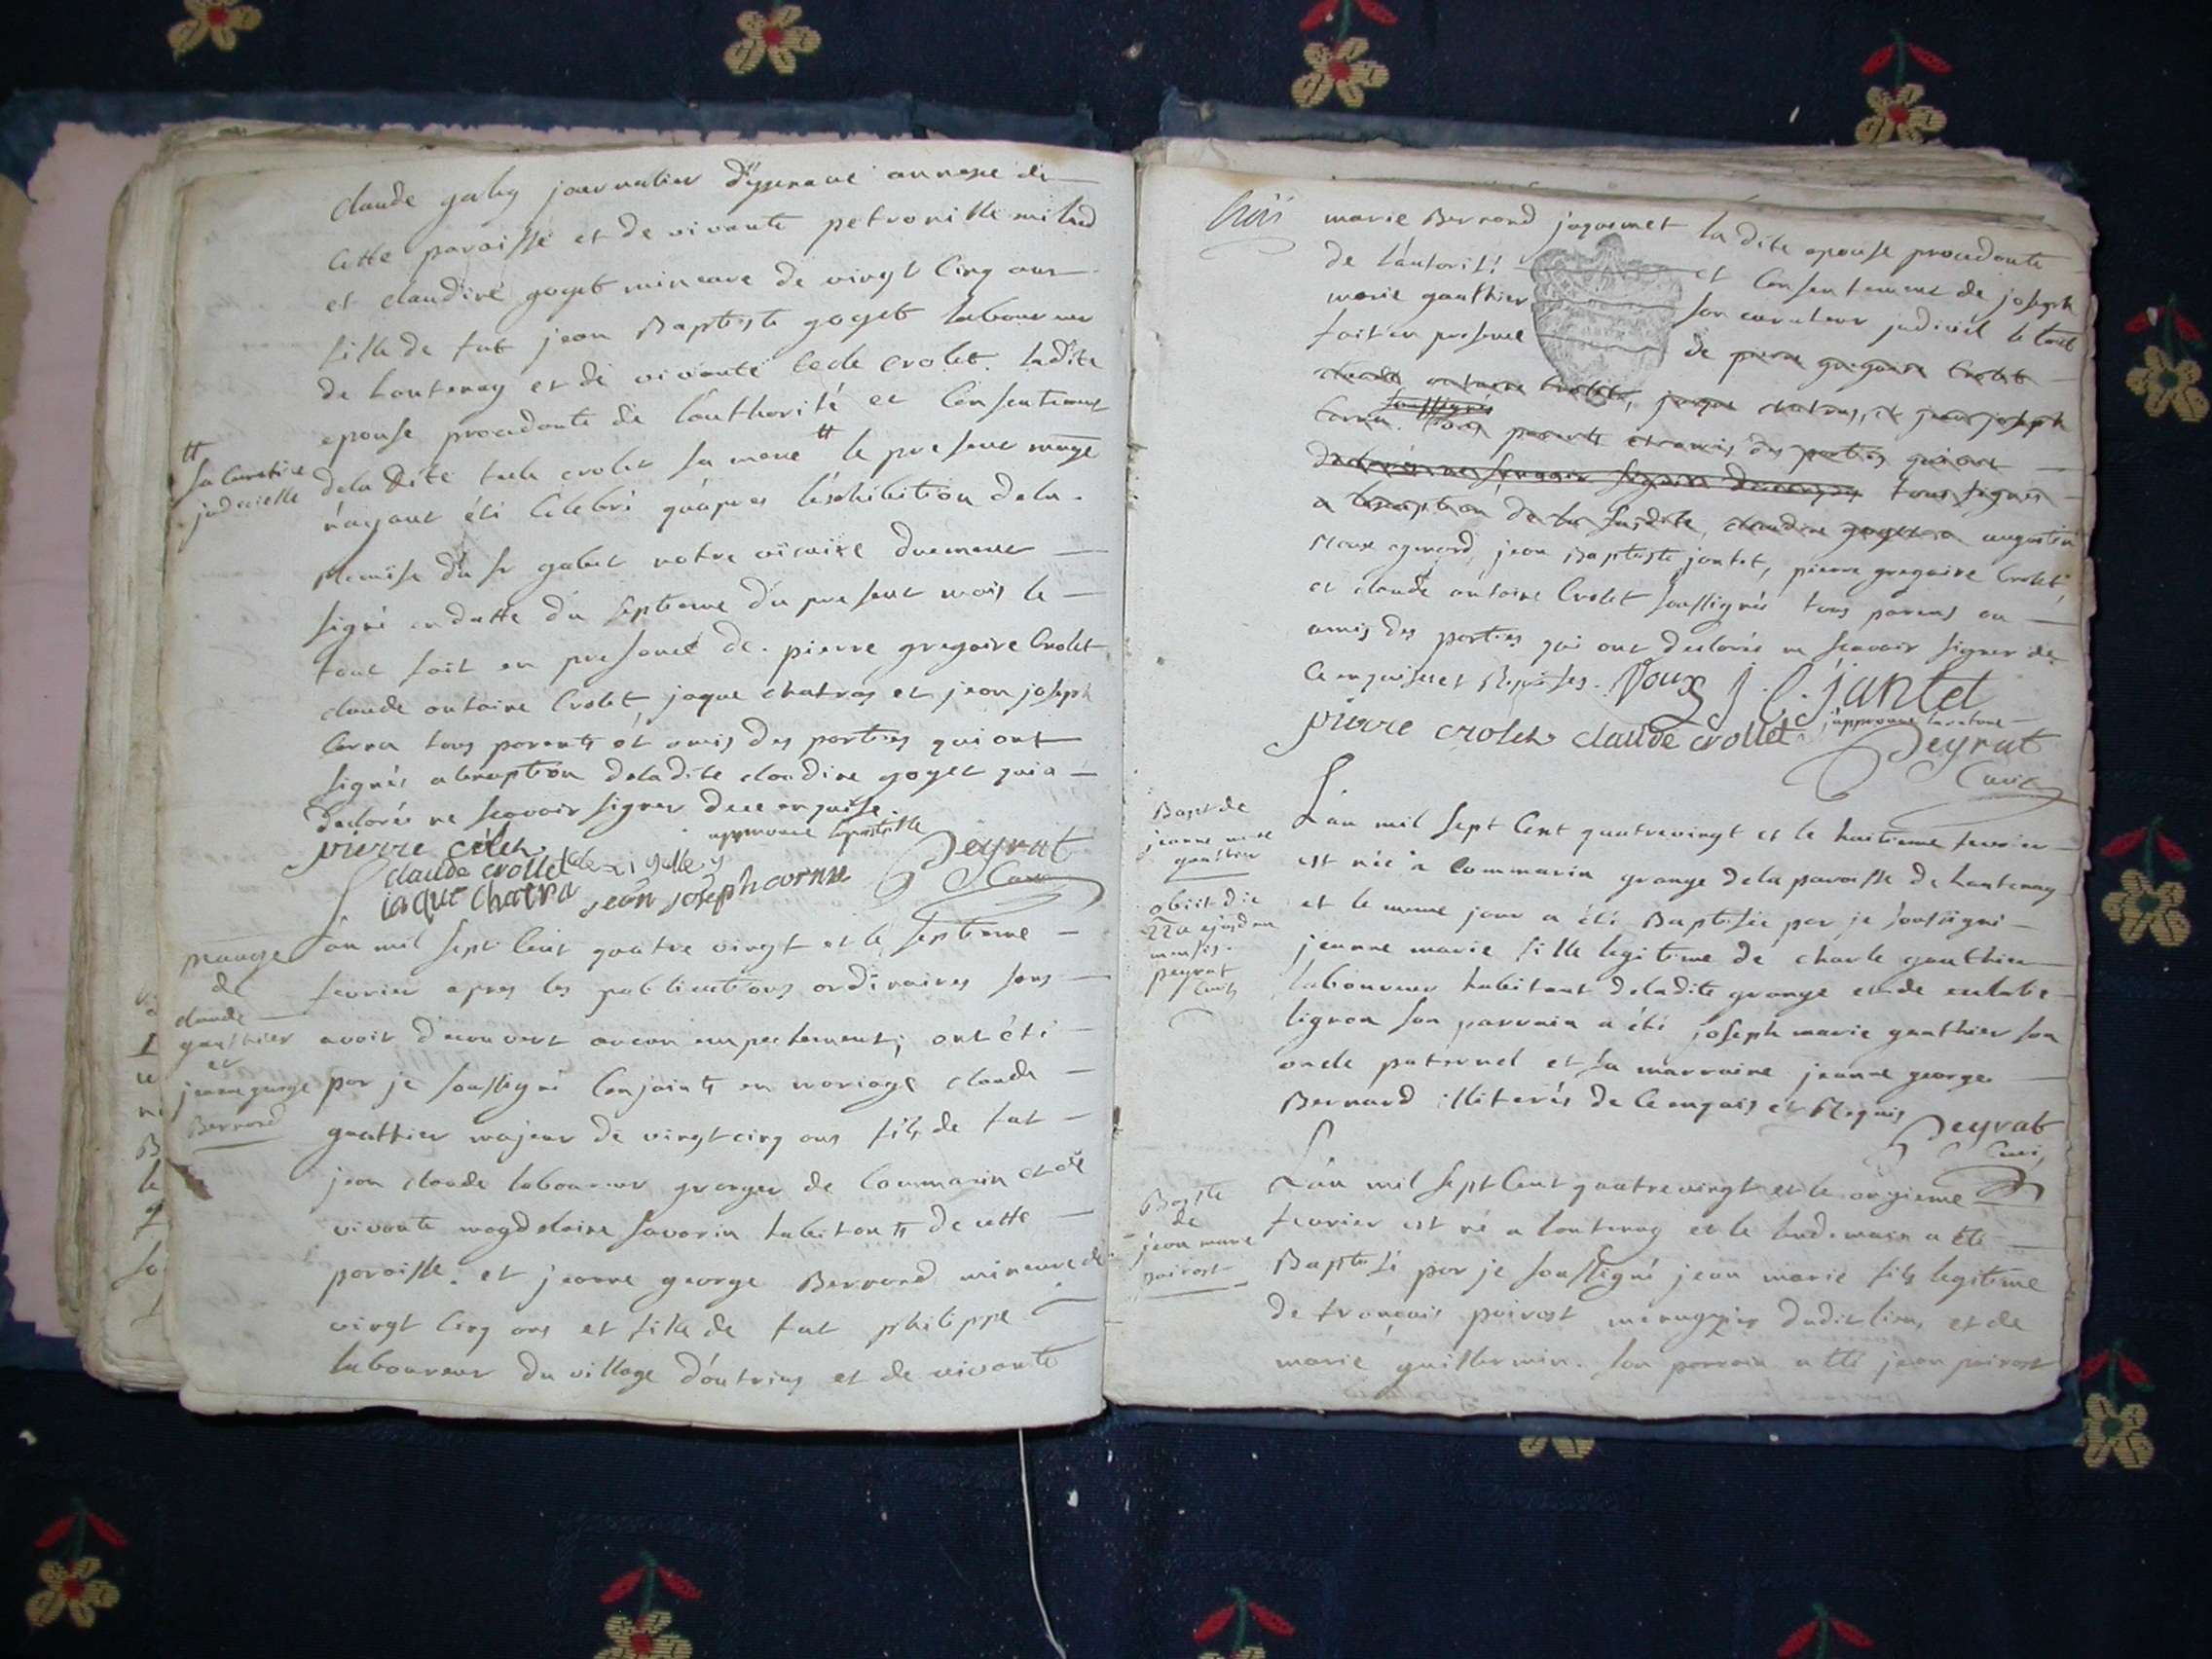 claude galey journalier annexe de
cette paroisse et de vivante petronille milad
et claudine goyet mineure de vingt cinq ans
fille de fut jean Baptiste goyet laboureur
de hautenay et de vivante tecle crolet. ladite
epouse procedante de l'authorité et consentement
dela dite tecle crolet sa mere # le present mariage
# sa curatrice
judicielle
n'ayant été celebré qu'apres l'exhibition dela
Remise du sr gabet notre vicaire duement
signé en datte du septieme du present mois le
tout fait en presence de pierre gregoire Crolet
claude antoine Crolet, jaque chatras et jean joseph
Cornu tous parents et amis des parties qui ont
signés a l'exception deladite claudine goyet qui a
declarés ne scavoir signer de ce enquise.
approuvé l'apostille
pierre crolet
claude crollet galley
iaque chatra jean joseph cornu
Peyrat
Curé
Mariage
de
claude
gauthier
et
jeanne george
Bernard
L'an mil sept Cent quatre vingt et le septieme
fevrier apres les publications ordinaires sans
avoir decouvert aucun empechement; ont été
par je soussigné Conjoints en mariage claude
gauthier majeur de vingt cinq ans fils de fut
jean claude laboureur granger de Commarin et de
vivante magdelaine savarin habitants de cette
paroisse. et jeanne george Bernard mineure de
vingt Cinq ans et fille de fut philippe
laboureur du village d'outriaz et de vivante
marie Bernard jaquemet ladite epouse procedante
de l'autorité et Consentement de joseph
marie gauthier son curateur judiciel le tout
fait en presence de pierre gregoire Crolet
claude antoine Crolet, jaque chatras, et jean joseph
Cornu soussignés tous parents et amis des parties qui ont
declarés ne scavoir signer de ce enquis tous signés
a l'exception de la susdite, claudine goyet augustin
Roux jean Baptiste jantet, pierre gregoire Crolet,
et claude antoine Crolet soussignés tous parens ou
amis des parties qui ont declarés ne scavoir signer de
Ce enquises et Requises. Roux J. C. jantet
pierre crolet claude crollet j'approuve la rature
Peyrat
Curé
Bapt de
jeanne marie
gauthier
obiit die
22a ejusdem
mensis.
peyrat
Curé
L'an mil sept Cent quatrevingt et le huitieme fevrier
est née a Commarin grange dela paroisse de hautenay
et le meme jour a été Baptisée par je soussigné
jeanne marie fille legitime de charle gauthier
laboureur habitant deladite grange et de
lignon son parrain a été joseph marie gauthier son
oncle paternel et sa marraine jeanne george
Bernard illiterés de Ce enquis et Requis
Peyrat
Curé
Bapte
de
jean marie
poirost
L'an mil sept Cent quatrevingt et le onzieme
fevrier est né a hautenay et le lendemain a été
Baptisé par je soussigné jean marie fils legitime
de françois poirost menuzier dudit lieu, et de
marie guillermin. son parrain a été jean poirost